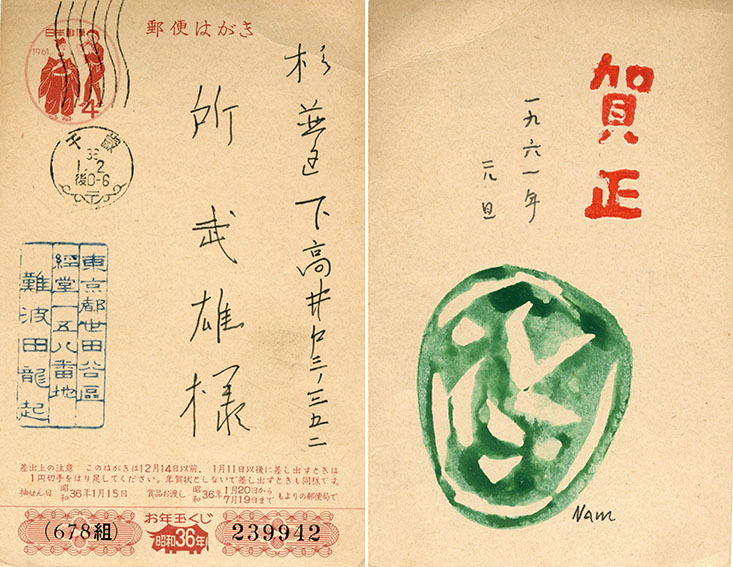 日本郵便
1961
4
郵便はがき
千歳
36
1.2
後0-6
杉並区下高井戸三ノ三五二
所武雄様
東京都世田谷區
經堂一五八番地
難波田龍起
差出上の注意 このはがきは12月14日以前、1月11日以後に差し出すときは
1円切手をはり足してください。年賀状としないで差し出すときも同様です。
抽せん日 昭和36年1月15日 賞品お渡し 昭和36年 1月20日から 7月19日まで もよりの郵便局で
お年玉くじ
(678組) 昭和36年 239942
賀正
一九六一年
元旦
Nam